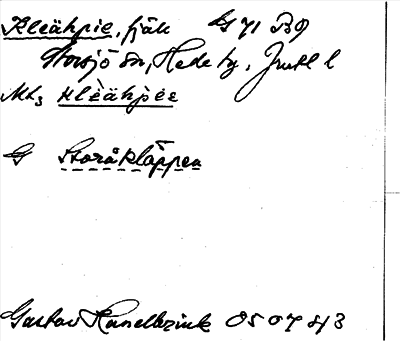 Kleähpie, fjäll G 71 B9
Storsjö sn, Hede tg, Jmtl l
Mt, klèähpèe
G Storåkläppen
Gustav Hasselbrink 05 07 43